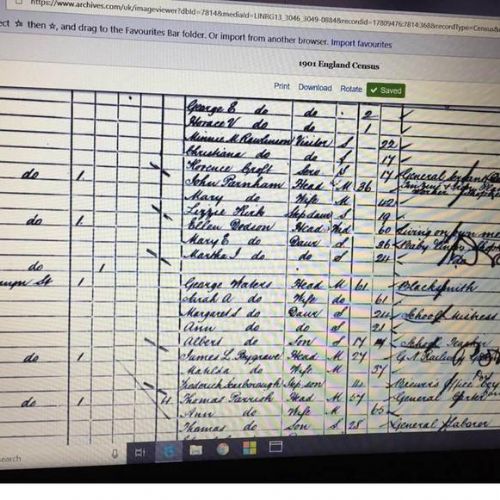 https://www.archives.com/uk/imageviewer?dbId=7814&mediaId=LINRG13_3046_3049-0884&recordId=17809476:7814:368&recordType=Census&
ect ☆ then ☆, and drag to the Favourites Bar folder. Or import from another browser. Import favourites
1901 England Census
Print Download Rotate ✓ Saved
George E do do 2
Horace V do do 1
Minnie M Rawlinson Visitor S 22
Christiana do do S 17
Florence Croft Serv S 17 General Servant
do 1 John Parnham Head M 36
Mary do Wife M 42
Lizzie Kirk Step daur S 19
do 1 Ellen Dodson Head Wid 60 Living on own
Mary E do Daur S 36
Martha J do do S 24 do
do 1
St 1 George Waters Head M 61 Blacksmith
Sarah A do Wife do 61
Margaret S do Daur S 24 School Mistress
Ann do do S 21
Albert do Son S 17 School
do 1 James L Bygrave Head M 27 G.N. Railway
Matilda do Wife M 37
Frederick Scarborough Step son Brewers Office Boy
do 1 4 Thomas Parrish Head M 67 General
Ann do Wife M 65
Thomas do Son S 28 General Laborer
earch